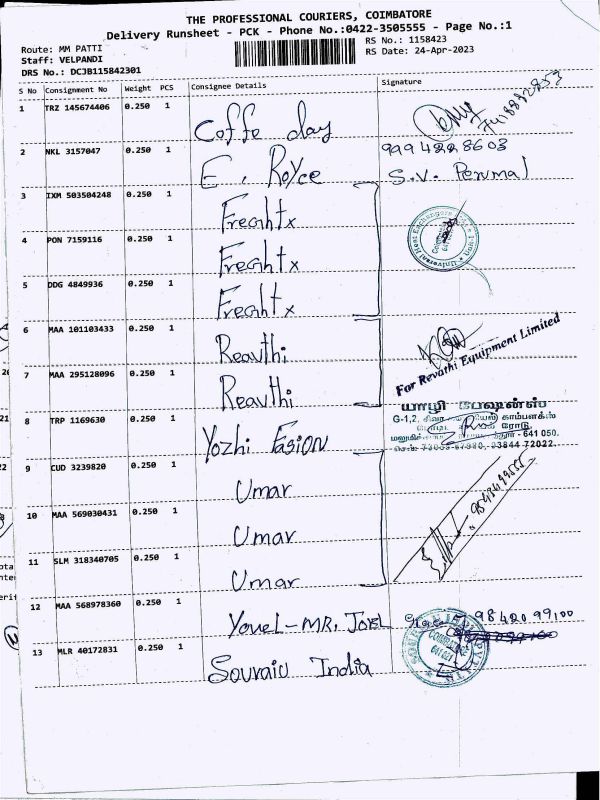 THE PROFESSIONAL COURIERS, COIMBATORE
Delivery Runsheet - PCK - Phone No.:0422-3505555 - Page No.:1
Route: MM PATTI
RS No.: 1158423
Staff: VELPANDI
RS Date: 24-Apr-2023
DRS No.: DCJB115842301
S No Consignment No Weight PCS Consignee Details Signature
1 TRZ 145674406 0.250 1 Coffe day
2 NKL 3157047 0.250 1 E. Royce 9994228603
S.V. Perumal
3 IXM 503504248 0.250 1 Freghtx
4 PON 7159116 0.250 1 Freghtx
5 DDG 4849936 0.250 1 Freghtx
6 MAA 101103433 0.250 1 Reavthi
For Revathi Equipment Limited
7 MAA 295128096 0.250 1 Reavthi
யாழி பேஷன்ஸ்
G-1,2, காம்பளக்ஸ்
ரோடு,
- 641 050.
8 TRP 1169630 0.250 1 Yozhi Fasion
72022.
9 CUD 3239820 0.250 1 Umar
10 MAA 569030431 0.250 1 Umar
11 SLM 318340705 0.250 1 Umar
12 MAA 568978360 0.250 1 Youel-MR. JOEL 98420 99100
13 MLR 40172831 0.250 1 Souraiu India
COIMBATORE